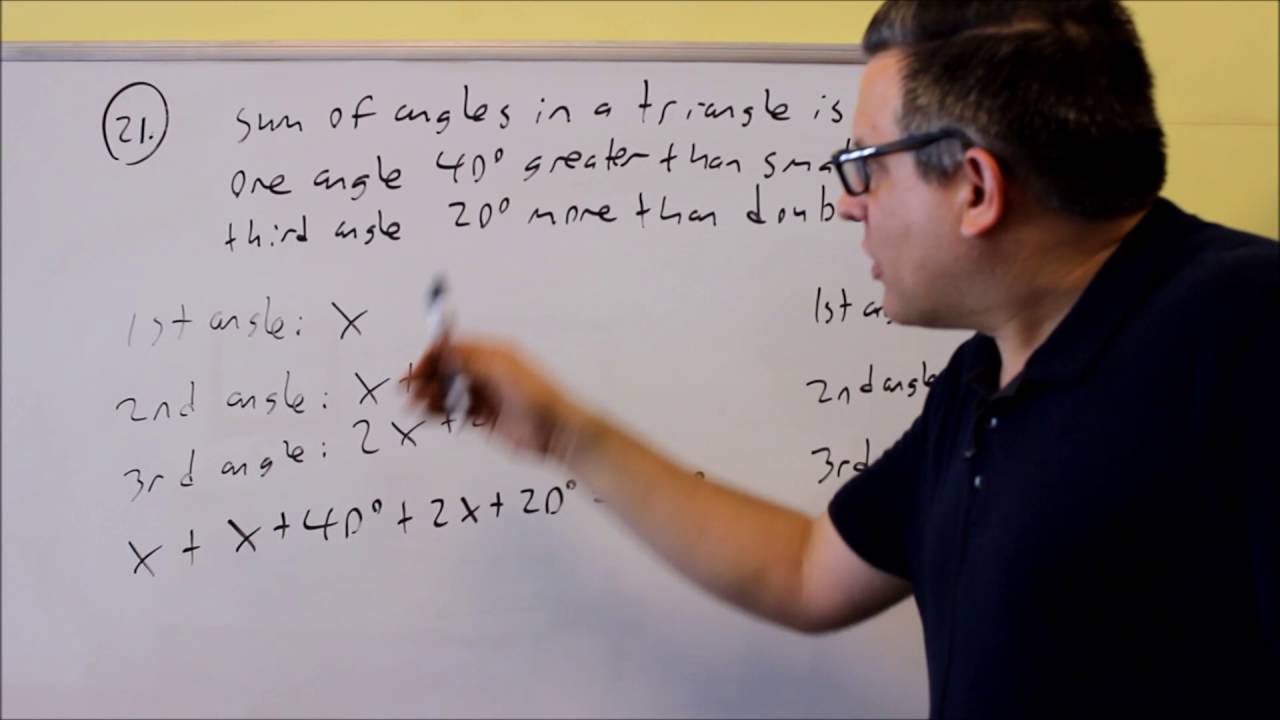 21. Sum of angles in a triangle is
one angle 40° greater than
third angle 20° more than
1st angle: X
2nd angle: X +
3rd angle: 2X +
X + X + 40° + 2X + 20°
1st
2nd angle
3rd